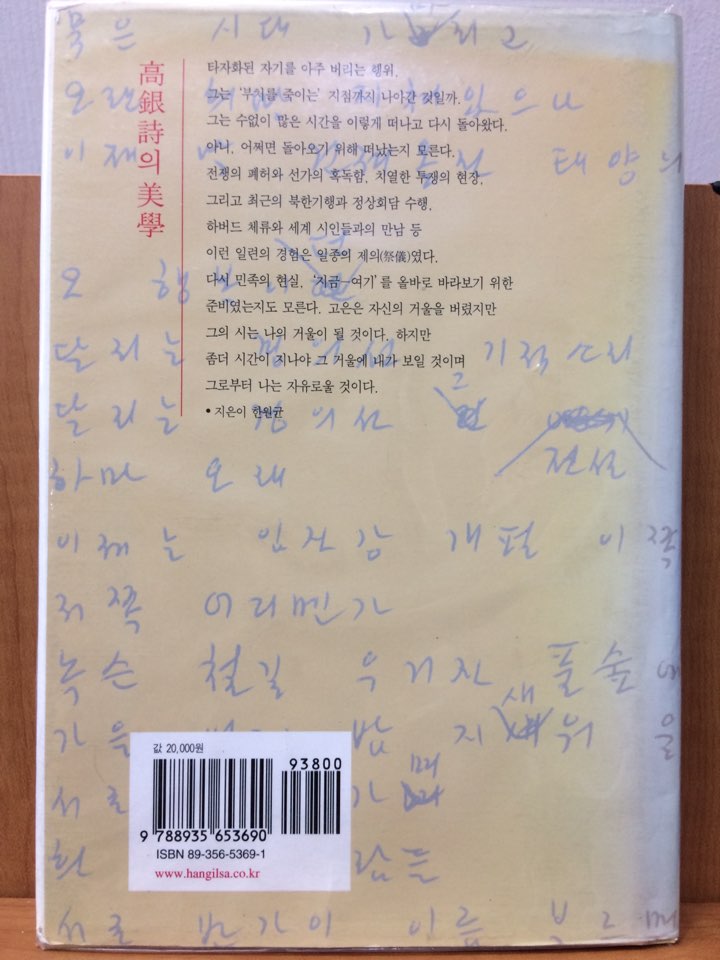 高銀詩의 美學
타자화된 자기를 아주 버리는 행위.
그는 '부처를 죽이는' 지점까지 나아간 것일까.
그는 수없이 많은 시간을 이렇게 떠나고 다시 돌아왔다.
아니, 어쩌면 돌아오기 위해 떠났는지 모른다.
전쟁의 폐허와 선가의 혹독함, 치열한 투쟁의 현장,
그리고 최근의 북한기행과 정상회담 수행,
하버드 체류와 세계 시인들과의 만남 등
이런 일련의 경험은 일종의 제의(祭儀)였다.
다시 민족의 현실, '지금—여기'를 올바로 바라보기 위한
준비였는지도 모른다. 고은은 자신의 거울을 버렸지만
그의 시는 나의 거울이 될 것이다. 하지만
좀더 시간이 지나야 그 거울에 내가 보일 것이며
그로부터 나는 자유로울 것이다.
• 지은이 한원균
묵은 시대 가
오
이제 태양
오
달리는 경의선 기적소리
달리는 경의선 그
전설
하마 오래
이제는 임진강 개펄 이쪽
저쪽 어리멘가
녹슨 철길 우거진 풀숲에
가을 밥 지 새워 울
서로 가
람들
서로 반가이 이름 부르며
값 20,000원
93800
9 788935 653690
ISBN 89-356-5369-1
www.hangilsa.co.kr